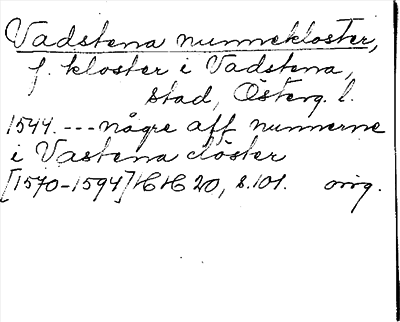 Vadstena nunnekloster,
f. kloster i Vadstena,
stad, Österg. l.
1544. --- någre aff nunnerne
i Vastenaclöster
[1570-1594] HH 20, s. 101. orig.